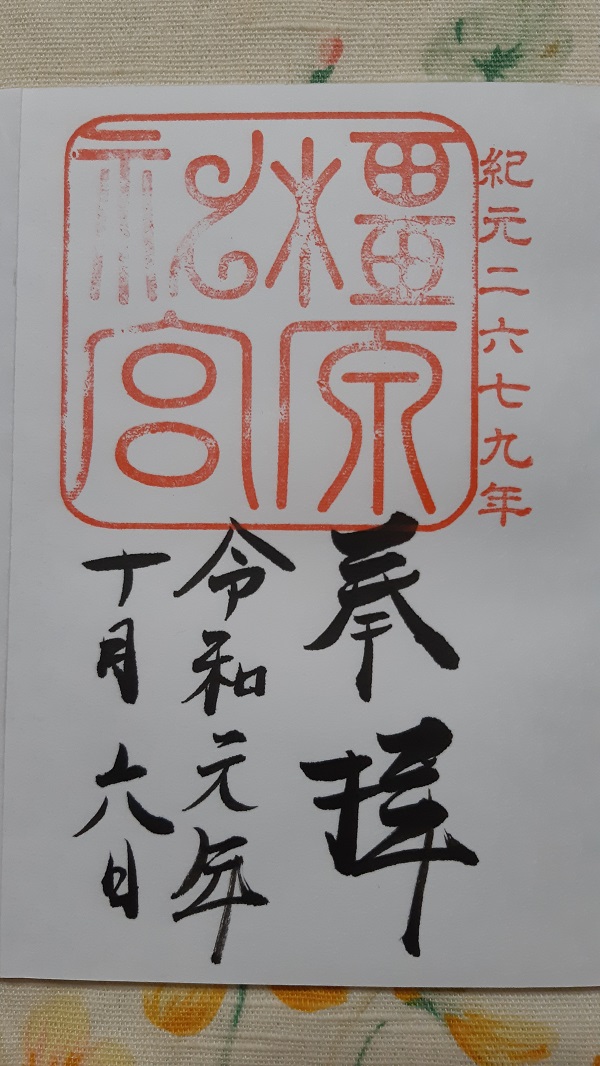 紀元二六七九年
橿原
神宮
奉拝
令和元年
十月六日